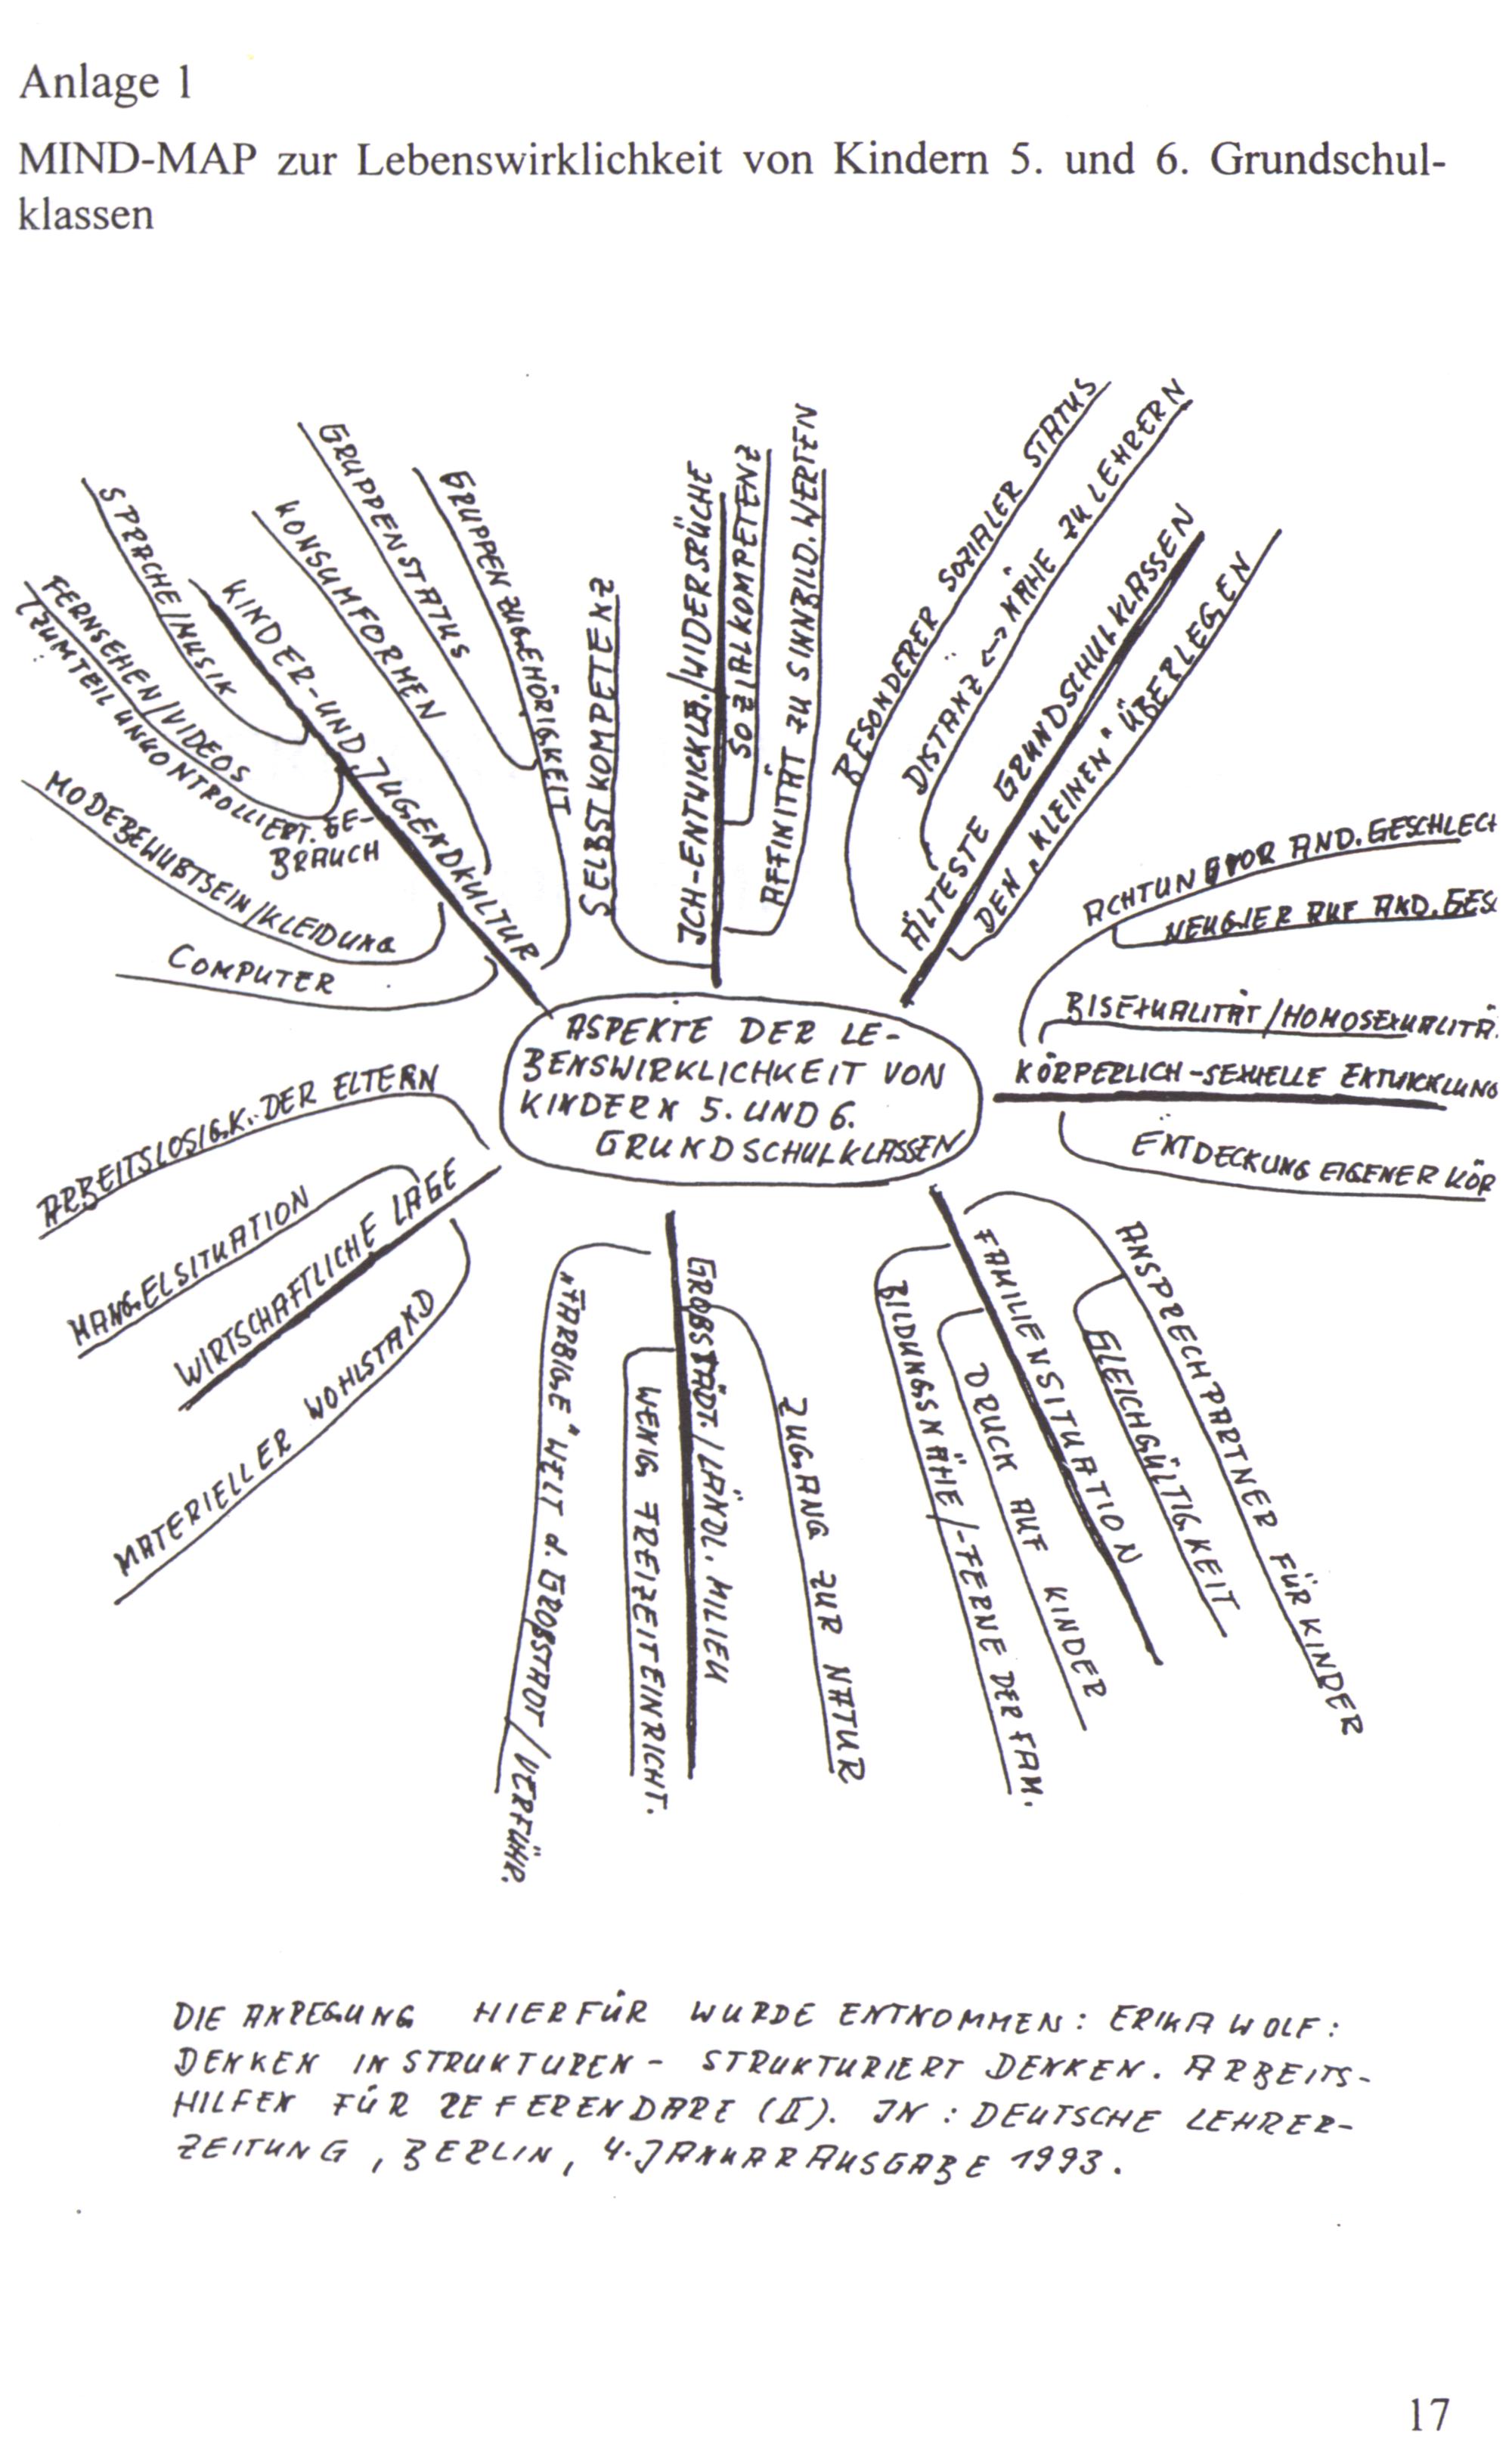 Anlage 1
MIND-MAP zur Lebenswirklichkeit von Kindern 5. und 6. Grundschul-
klassen
SPRACHE/MUSIK
FERNSEHEN/VIDEOS
(ZUMTEIL UNKONTROLLIERT. GE-
BRAUCH
MODEBEWUßTSEIN/KLEIDUNG
COMPUTER
KINDER-UND JUGENDKULTUR
KONSUMFORMEN
GRUPPENSTATUS
GRUPPENZUGEHÖRIGKEIT
SELBSTKOMPETENZ
ICH-ENTWICKLG./WIDERSPRÜCHE
SOZIALKOMPETENZ
AFFINITÄT ZU SINNBILD. WERTEN
BESONDERER SOZIALER STATUS
DISTANZ <-> NÄHE ZU LEHRERN
ÄLTESTE GRUNDSCHULKLASSEN
DEN „KLEINEN" ÜBERLEGEN
ACHTUNG VOR AND. GESCHLECH
NEUGIER AUF AND. GES
BISEXUALITÄT/HOMOSEXUALITÄ
KÖRPERLICH-SEXUELLE ENTWICKLUNG
ENTDECKUNG EIGENER KÖR
ASPEKTE DER LE-
BENSWIRKLICHKEIT VON
KINDERN 5. UND 6.
GRUNDSCHULKLASSEN
ARBEITSLOSIGK. DER ELTERN
MANGELSITUATION
WIRTSCHAFTLICHE LAGE
MATERIELLER WOHLSTAND
„FARBIGE" WELT d. GROßSTADT/VERFÜHR.
WENIG FREIZEITEINRICHT.
GROßSTÄDT./LÄNDL. MILIEU
ZUGANG ZUR NATUR
BILDUNGSNÄHE/-FERNE DER FAM.
DRUCK AUF KINDER
FAMILIENSITUATION
GLEICHGÜLTIGKEIT
ANSPRECHPARTNER FÜR KINDER
DIE ANREGUNG HIERFÜR WURDE ENTNOMMEN: ERIKA WOLF:
DENKEN IN STRUKTUREN - STRUKTURIERT DENKEN. ARBEITS-
HILFEN FÜR REFERENDARE (II). IN: DEUTSCHE LEHRER-
ZEITUNG, BERLIN, 4. JANUARAUSGABE 1993.
17